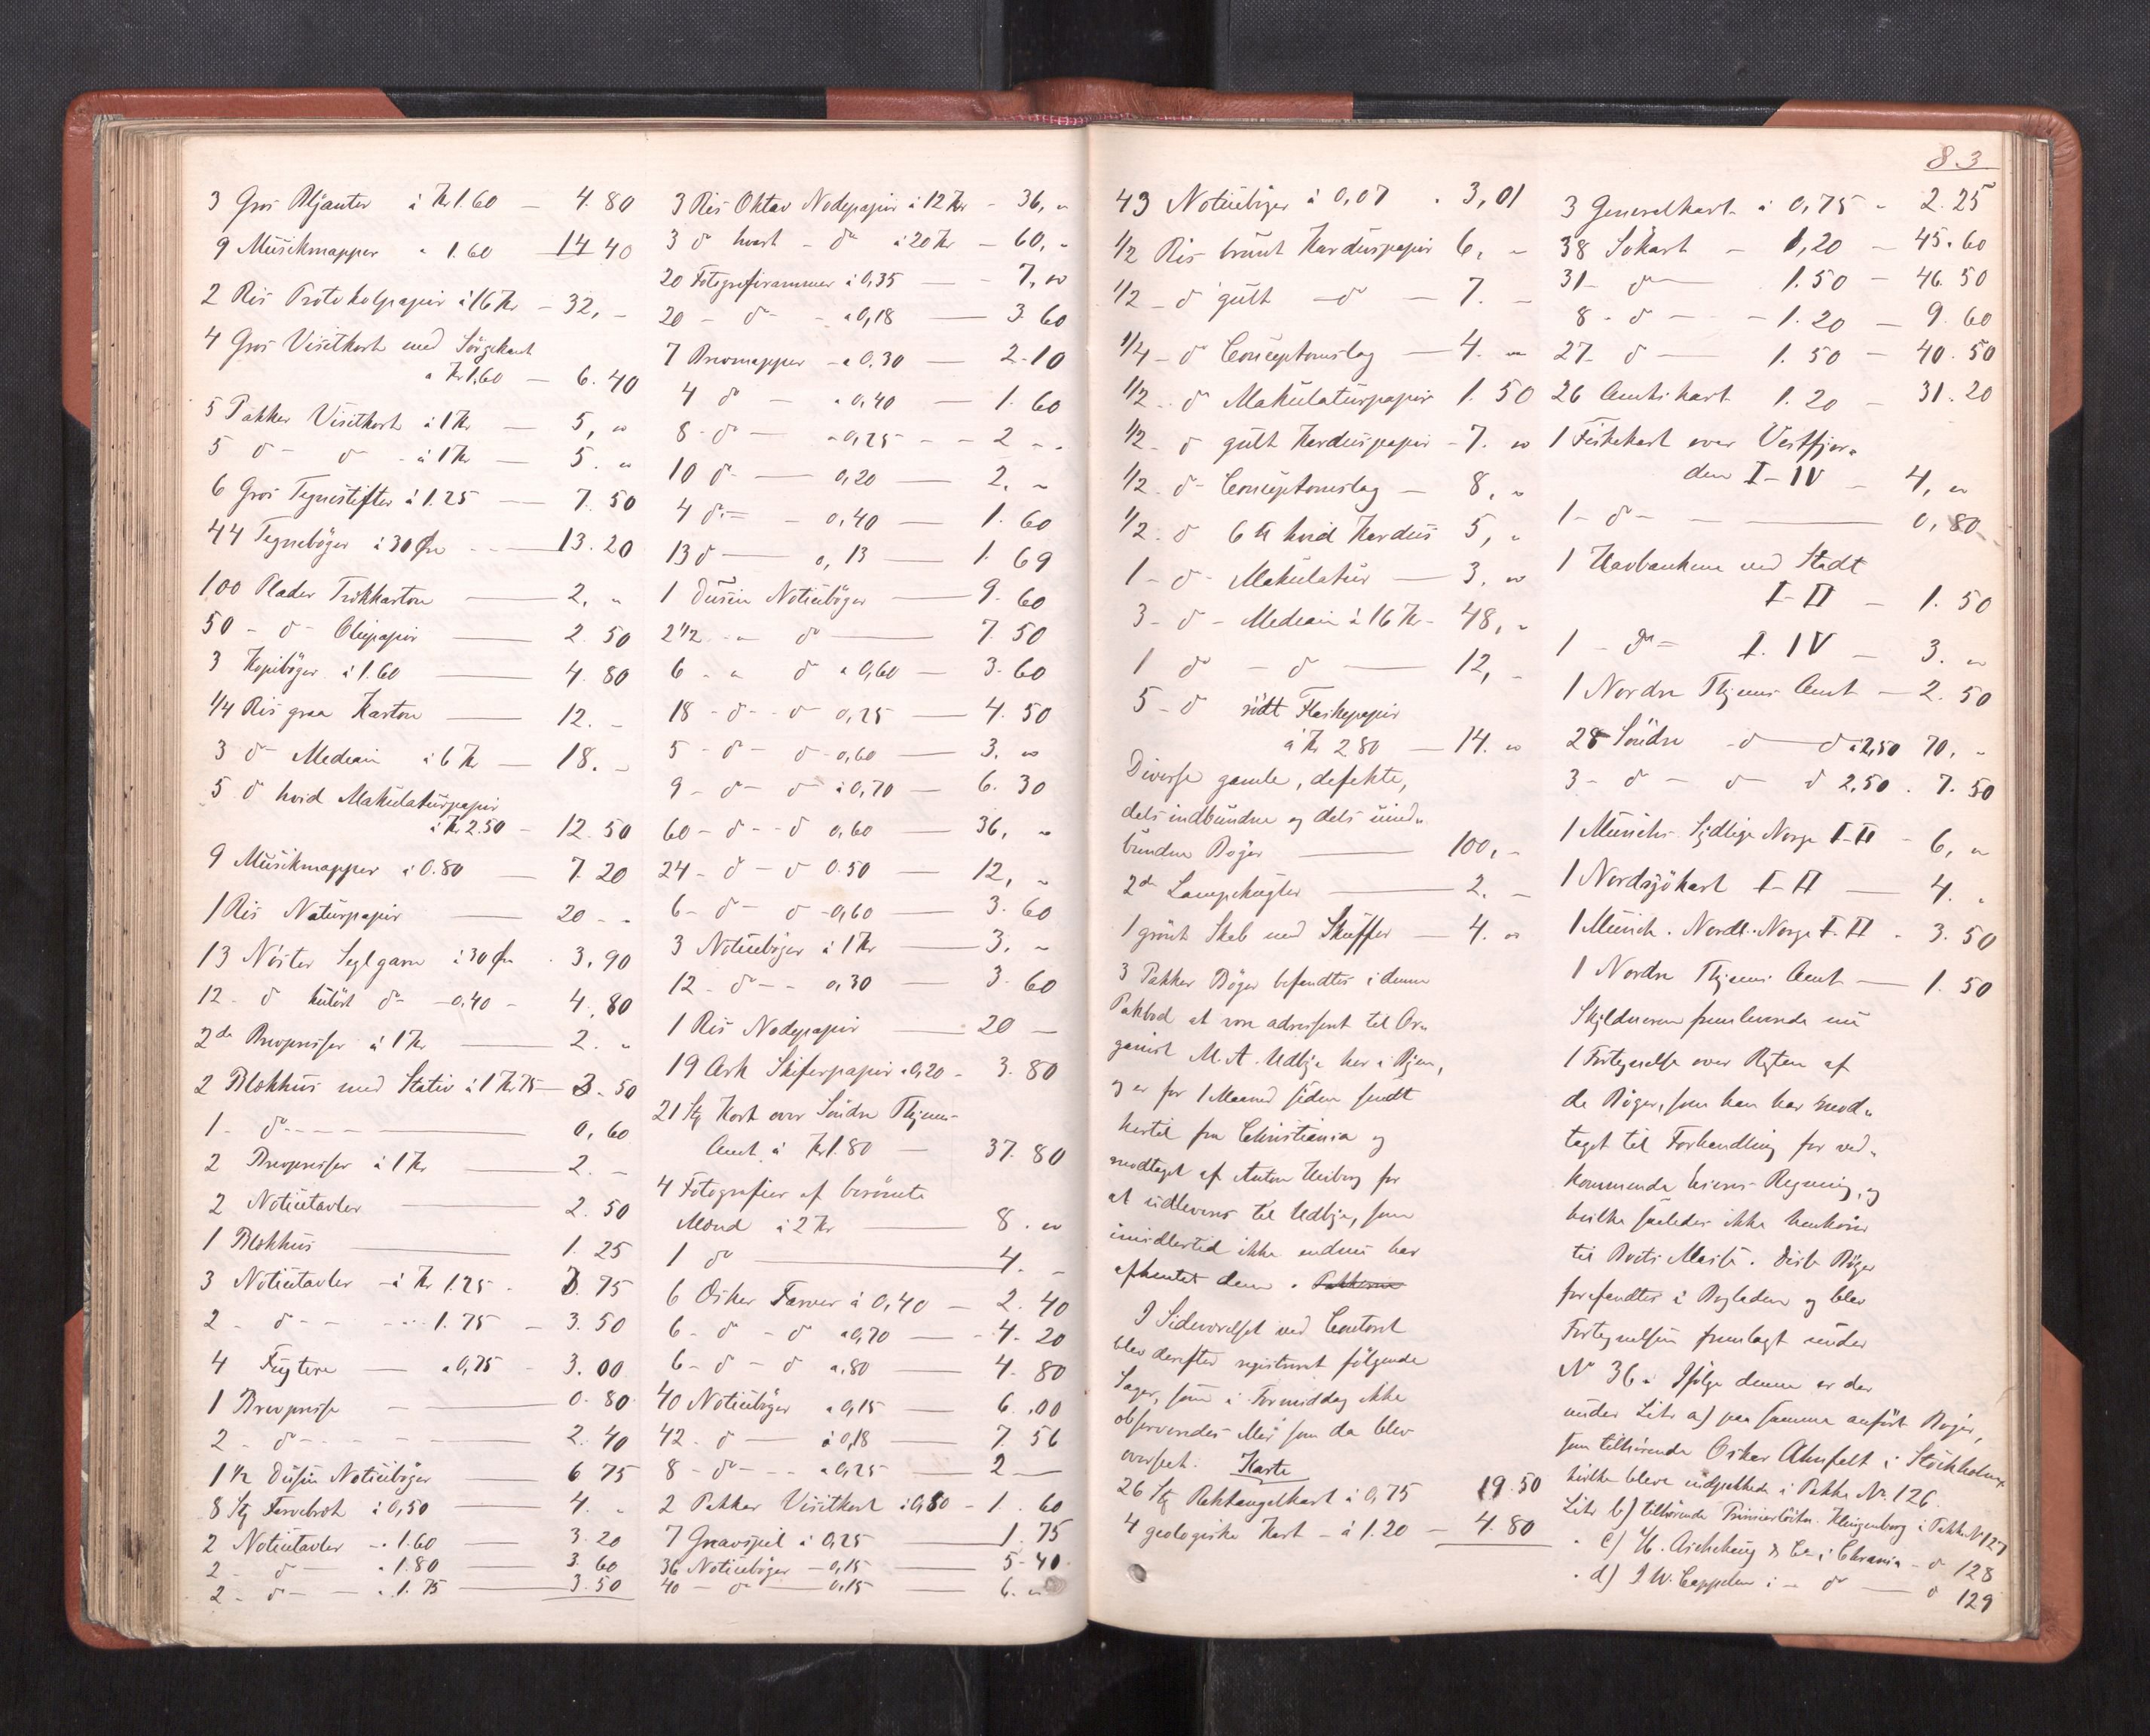 3 Gros Blyanter à Kr 1.60 — 4.80
9 Musikmapper " 1.60 14 40
2 Ris Protokolpapir à 16 Kr – 32, –
4 Gros Visitkort med Sørgekant
" Kr 1.60 — 6.40
5 Pakker Visitkort à 1 Kr — 5, "
5 do – do – à 1 Kr — 5. "
6 Gros Tegnestifter à 1.25 — 7.50
44 Tegnebøger à 30 Øre — 13.20
100 Plader Trykkarton — 2, "
50 – do – Oliepapir — 2.50
3 Kopibøger à 1.60 — 4.80
1/4 Ris graa Karton — 12. –
3 do – Median à 6 Kr — 18. –
5 do hvid Makulaturpapir
à Kr 2.50 – 12.50
9 Musikmapper à 0.80 — 7.20
1 Ris Naturpapir — 20 – –
13 Nøster Seglgarn à 30 Øre . 3,90
12 – do kulørt do – 0,40 – 4,80
2de Brevpresser à 1 Kr — 2. "
2 Blækhus med Stativ à 1 Kr 75 — 3.50
1 – do — 0,60
2 Brevpresser à 1 Kr — 2. –
2 Notitstavler — 2.50
1 Blækhus — 1.25
3 Notitstavler – à Kr 1.25 . 3.75
2 – do – – 1.75 – 3.50
4 — à 0,75 – 3.00
1 Brevpresse — 0.80
2 – do — 2.40
1 1/2 Dusin Notitsbøger — 6 75
8 Stk Farvebrot à 0,50 — 4. "
2 Notitstavler – 1.60 — 3.20
2 – do — " 1.80 — 3.60
2 – do — " 1.75 — 3.50
3 Ris Oktav Nodepapir à 12 Kr – 36, "
3 do kvart – do à 20 Kr – 60, "
20 Fotografirammer à 0,35 — 7, "
20 – do – " 0,18 — 3.60
7 Brevmapper – à 0,30 — 2.10
4 do — " 0,40 — 1.60
8 – do — " 0,25 – – 2 – –
10 do — 0,20 — 2, "
4 do – – 0,40 — 1.60
13 do — 0,13 — 1.69
1 Dusin Notitsbøger — 9.60
2 1/2 – " do — 7.50
6 – " do à 0,60 — 3.60
18 – do – do 0,25 — 4.50
5 – do – do – 0,60 — 3. "
9 – do – do à 0,70 — 6.30
60 – do – do 0,60 — 36, "
24 – do – do 0.50 — 12, "
6 – do – do – 0,60 — 3.60
3 Notitsbøger à 1 Kr — 3. "
12 – do – – 0,30 — 3.60
1 Ris Nodepapir — 20 —
19 Ark Skiferpapir à 0,20 – 3.80
21 Stk Kort over Søndre Thjems
Amt à Kr 1.80 — 37.80
4 Fotografier af berømte
Mænd à 2 Kr — 8. "
1 do — 4. –
6 Æsker Farver à 0,40 — 2.40
6 – do – do à 0,70 — 4.20
6 – do – do à ,80 — 4.80
40 Notitsbøger à 0,15 — 6.00
42 – do — à 0,18 — 7.56
8 – do – – à 0,25 — 2 —
2 Pakker Visitkort à 0,80 – 1.60
7 Gnavspil à 0,25 — 1.75
36 Notitsbøger – 0,15 — 5.40
40 – do — 0,15 — 6. "
83
43 Notitsbøger à 0,07 . 3,01
1/2 Ris brunt Karduspapir 6, –
1/2 – do gult – do — 7. –
1/4 – do Conceptomslag — 4. "
1/2 – do Makulaturpapir 1.50
1/2 – do gult Karduspapir – 7. "
1/2 – do – Conceptomslag — 8, "
1/2 . do 6 ℔ hvid Kardus 5, "
1 – do – Makulatur — 3. "
3 – do – Median à 16 Kr – 48, "
1 do – do — 12, –
5 – do rødt Flaskepapir
à Kr 2.80 — 14. "
Diverse gamle, defekte,
dels indbundne og dels uind-
bundne Bøger — 100, –
2de Lampekugler — 2. –
1 grønt Skab med Skuffer — 4. "
3 Pakker Bøger befandtes i denne
Pakbod at være adresseret til Or-
ganist M. A. Udbye her i Byen,
og er for 1 Maaned siden sendt
hertil fra Christiania og
modtaget af Anton Huiberg for
at udleveres til Udbye, som
imidlertid ikke endnu har
afhentet dem. Pakkerne
I Sideværelset ved Contoret
blev derefter registreret følgende
Sager, som i Formiddag ikke
observeredes eller som da blev
overseet. Karte
26 Stk Rektangelkart à 0,75 19.50
4 geologiske Kart – à 1.20 — 4.80
3 Generalkart à 0,75 – 2.25
38 Søkart – 1,20 — 45.60
31 – do — 1.50 — 46.50
8 – do — – 1.20 — 9.60
27 – do — 1.50 — 40.50
26 Amtskart 1.20 — 31.20
1 Fiskekart over Vestfjor-
den I – IV – 4, "
1 – do – — 0,80
1 Havbankerne ved Stadt
I – II – 1.50
1 – do – I. IV – 3. "
1 Nordre Thjems Amt — 2.50
28 Søndre – do — do à 2,50 70, "
3 – do – do do 2,50 . 7.50
1 Munchs Sydlige Norge I–II – 6, "
1 Nordsjøkart I–II — 4. "
1 Munch. Nordl. Norge I–II . 3.50
1 Nordre Thjems Amt — 1.50
Skyldneren fremleverede nu
1 Fortegnelse over Resten af
de Bøger, som han har mod-
taget til Forhandling for ved-
kommende Eieres Regning, og
hvilke saaledes ikke henhører
til Boets Masse. Disse Bøger
forefandtes i Bogladen og blev
Fortegnelsen fremlagt under
No 36. Ifølge denne er der
under Litr a) paa samme anført Bøger,
som tilhørende Oskar Ahnfelt i Stockholm
hvilke bleve indpakkede i Pakke No. 126.
Litr b) tilhørende Klingenberg i Pakke No 127
" c) H. Aschehoug & Co i Chrania – do 128
" d) J. W. Cappelen i – do — do 129